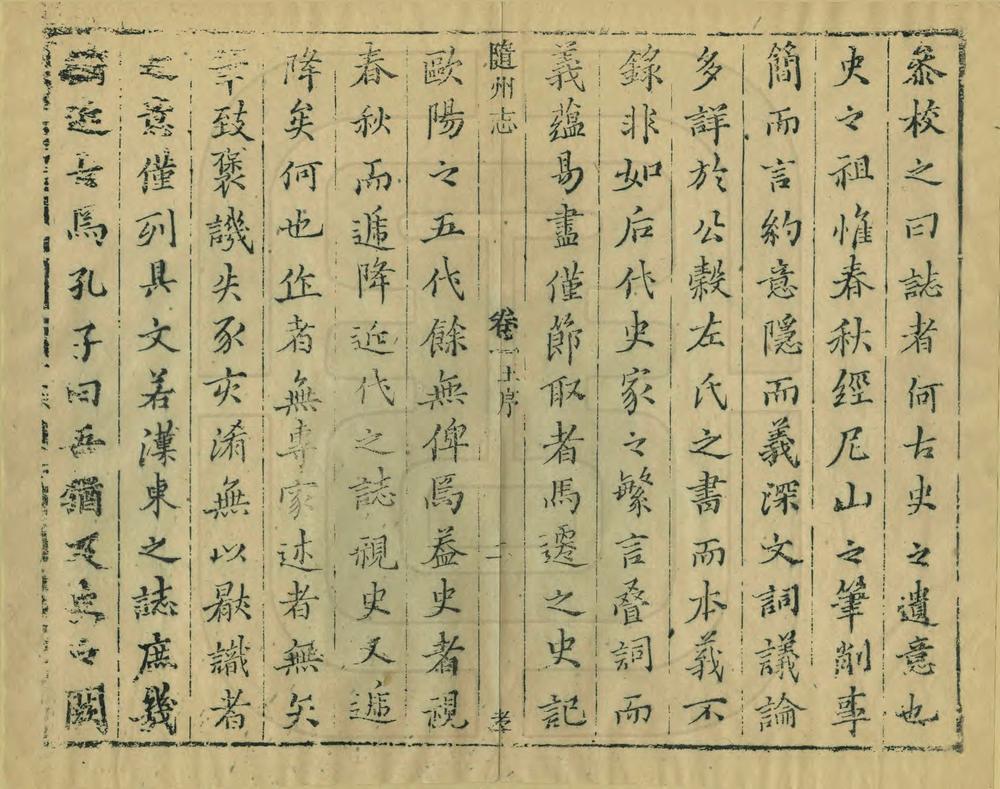 叅校之曰誌者何古史之遺意也
史之祖惟春秋經尼山之筆削事
簡而言約意隱而義深文詞議論
多詳於公穀左氏之書而本義不
錄非如后代史家之繁言疊詞而
義蘊易盡僅節取者馬遷之史記
隨州志
卷 上序
二
歐陽之五代餘無俾焉益史者視
春秋而遞降近代之誌視史又遞
降矣何也作者無專家述者無矢
致褒譏失豕亥淆無以厭識者
之意僅列具文若漢東之誌庶幾
近古焉孔子曰吾猶及史之闕